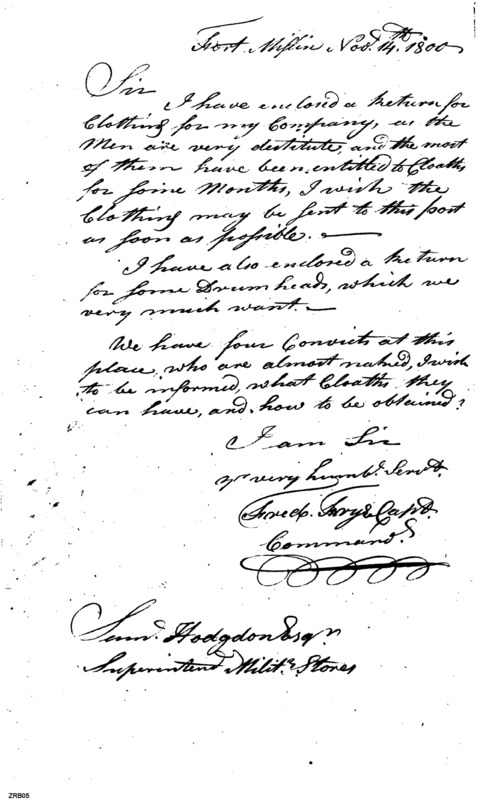 Fort Miflin Novr. 14th. 1800
Sir
I have enclosed a Return for
Clothing for my Company, as the
Men are very destitute, and the most
of them have been entitled to Cloaths
for some Months, I wish the
Clothing may be sent to this post
as soon as possible.
I have also enclosed a Return
for some Drum heads, which we
very much want.
We have four Convicts at this
place, who are almost naked, I wish
to be informed, what Cloaths they
can have, and how to be obtained?
I am Sir
yr. very humbl. Servt.
Fredc. Frye Capt.
Command.
Saml. Hodgdon Esqr.
Superintend Mility. Stores
ZRB05